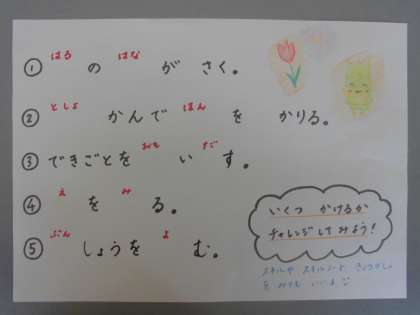 はる はな
① の が さく。
としょ ほん
② かんで を かりる。
おも だ
③ できごとを い す。
え み
④ を る。
ぶん よ
⑤ しょうを む。
いくつ かけるか
チャレンジしてみよう!
スキルや スキルノート、きょうかしょ
を みても いいよ